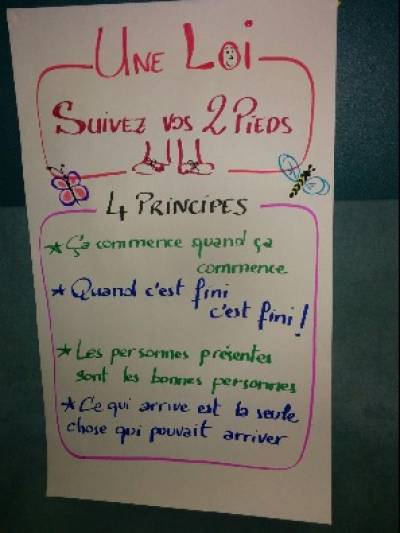 UNE LOI
SUIVEZ VOS 2 PIEDS
4 PRINCIPES
★ Ça commence quand ça
commence
★ Quand c'est fini
c'est fini!
★ Les personnes présentes
sont les bonnes personnes
★ Ce qui arrive est la seule
chose qui pouvait arriver